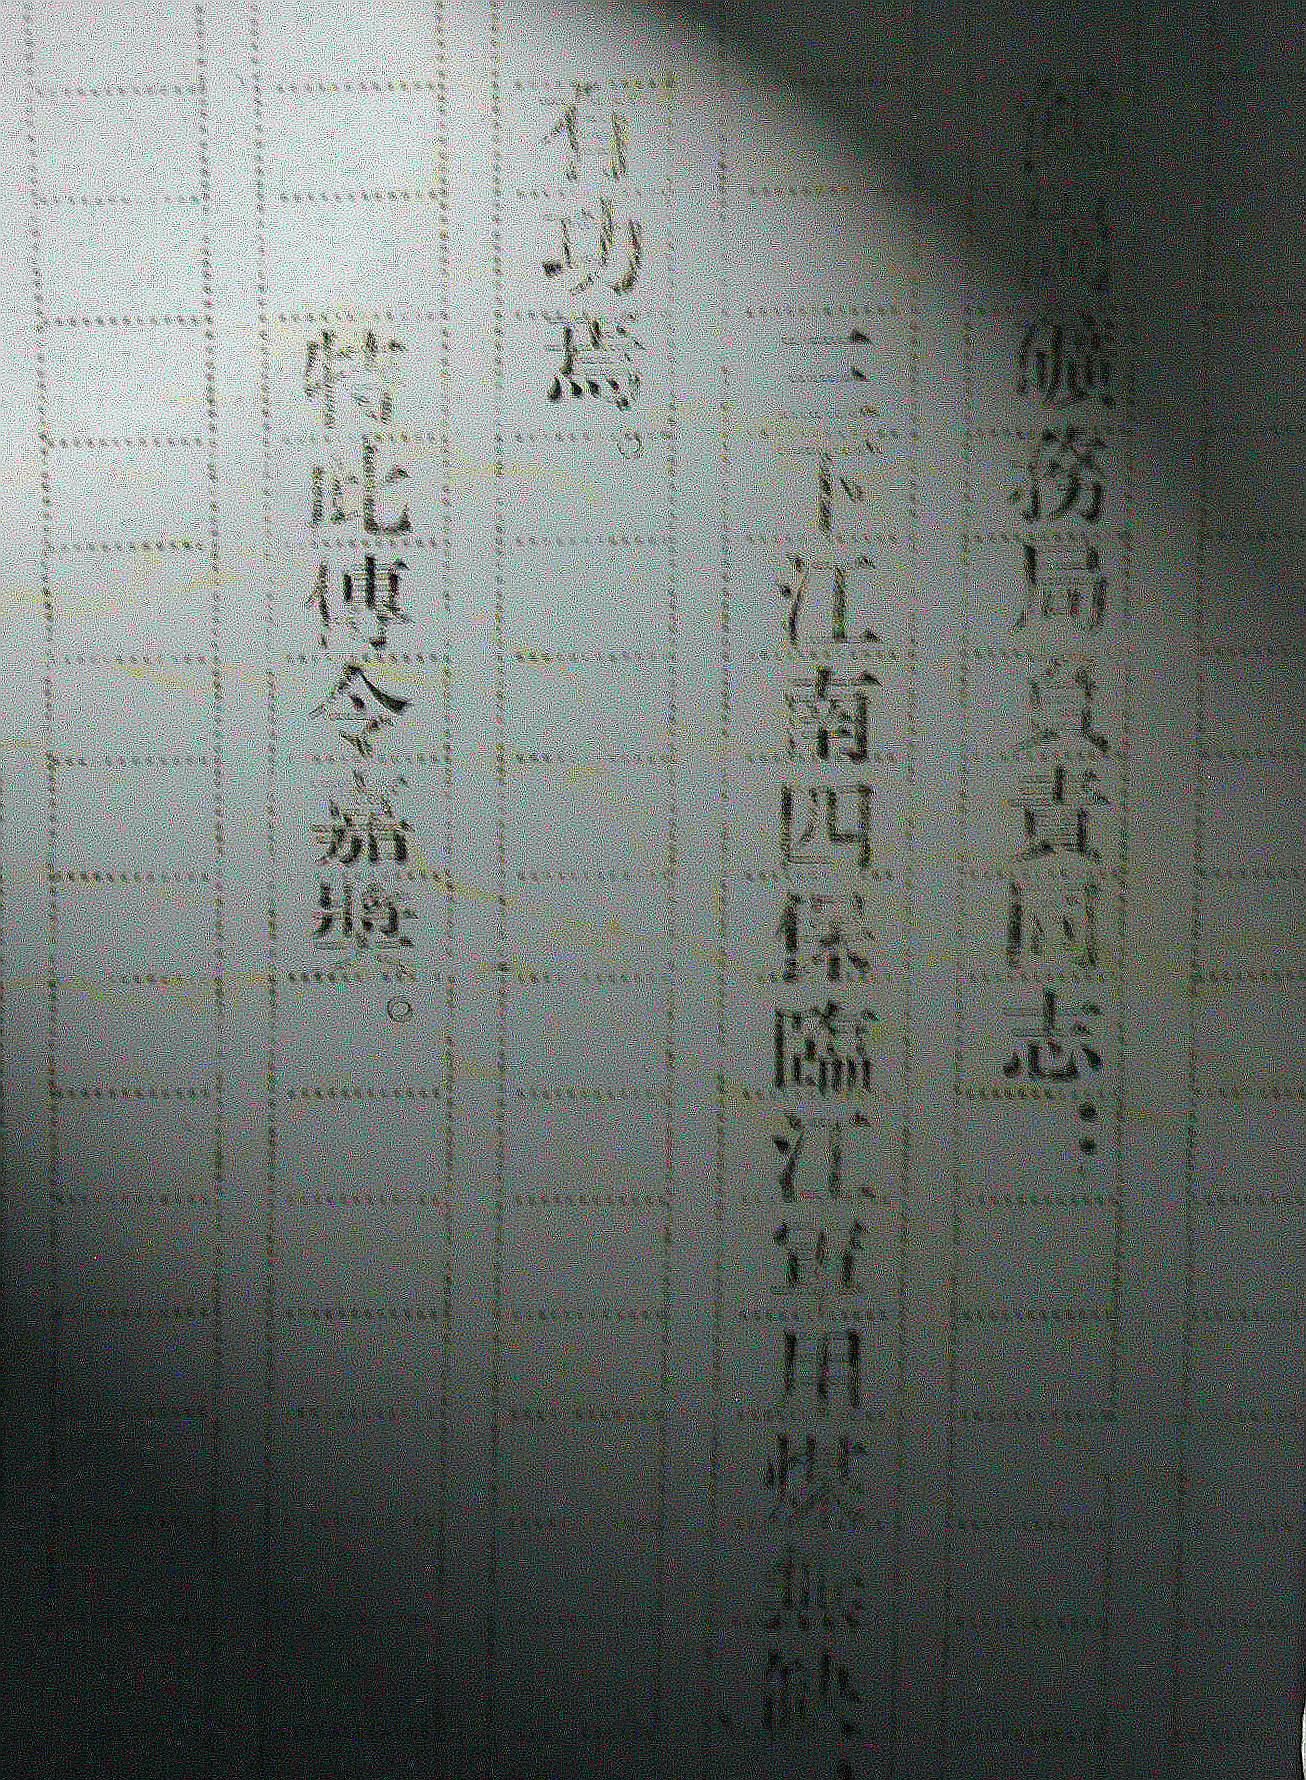 礦務局負責同志：
三下江南四保臨江軍用煤無缺；
有功焉。
特此傳令嘉獎。